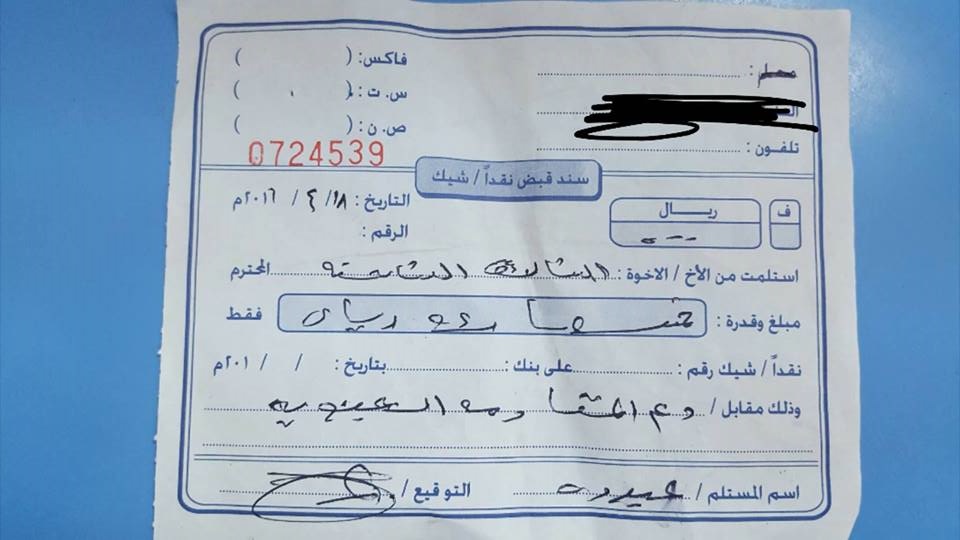 محلم :
فاكس: ( )
س. ت: ( )
تلفون :
ص. ن: ( )
0724539
سند قبض نقداً / شيك
التاريخ: ١٨/ ٤ / ٢٠١٦م
ف ريال
الرقم:
استلمت من الأخ / الاخوة : المحترم
مبلغ وقدرة : خمسمائة ريال فقط
نقداً / شيك رقم : على بنك: بتاريخ: / / ٢٠١م
وذلك مقابل / دعم المقاومة الجنوبية
اسم المستلم / عيدروس التوقيع /